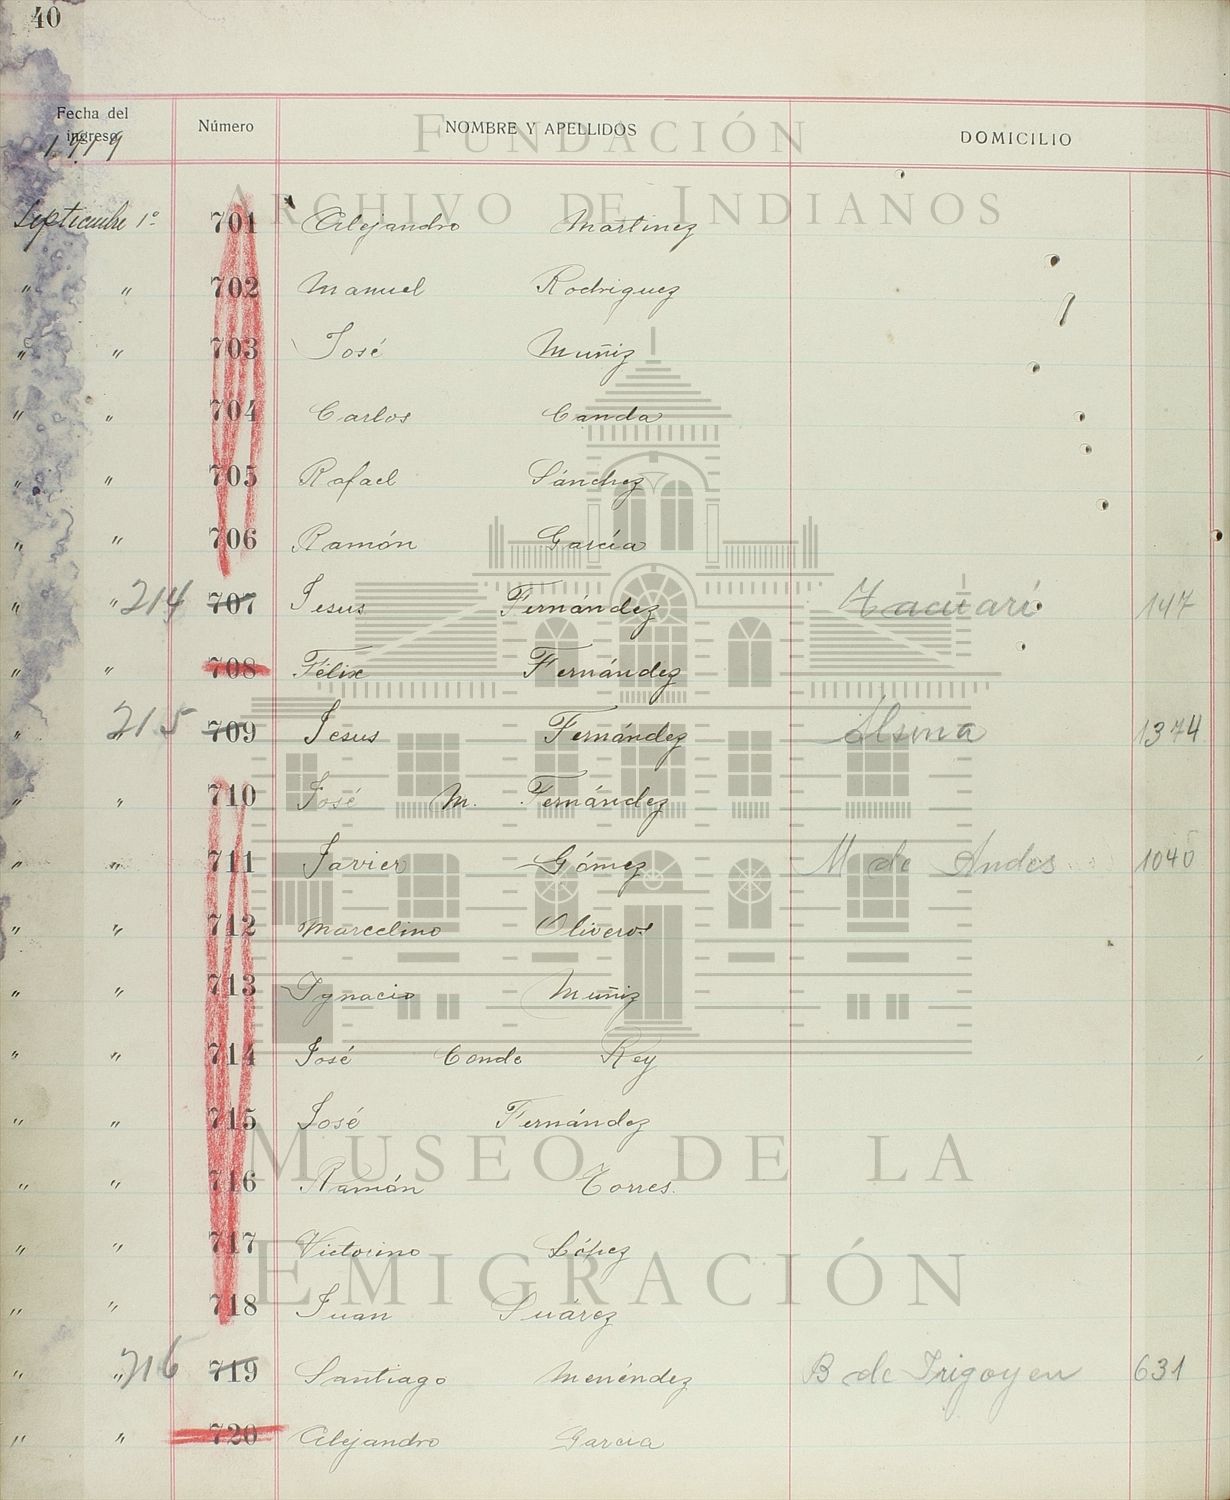 40
Fecha del ingreso Número NOMBRE Y APELLIDOS DOMICILIO
1919
FUNDACIÓN
ARCHIVO DE INDIANOS
Septiembre 1º 701 Alejandro Martinez
" " 702 Manuel Rodriguez
" " 703 José Muñiz
" " 704 Carlos Canda
" " 705 Rafael Sánchez
" " 706 Ramón García
" " 214 707 Jesus Fernández Tacuari 147
" " 708 Félix Fernández
" " 215 709 Jesus Fernández Alsina 1374
" " 710 José M. Fernández
" " 711 Javier Gómez M de Andes 1040
" " 712 Marcelino Oliveros
" " 713 Ygnacio Muñiz
" " 714 José Conde Rey
" " 715 José Fernández
MUSEO DE LA
" " 716 Ramón Torres.
" " 717 Victorino López
EMIGRACIÓN
" " 718 Juan Suárez
" " 216 719 Santiago Menéndez B de Irigoyen 631
" " 720 Alejandro Garcia